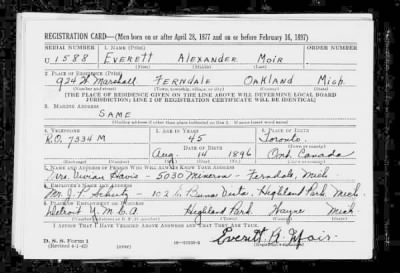 REGISTRATION CARD—(Men born on or after April 28, 1877 and on or before February 16, 1897)
SERIAL NUMBER 1. NAME (Print) ORDER NUMBER
U 1588 EVERETT ALEXANDER MOIR
(First) (Middle) (Last)
2. PLACE OF RESIDENCE (Print)
924 W Marshall FERNDALE OAKLAND Mich.
(Number and street) (Town, township, village, or city) (County) (State)
[THE PLACE OF RESIDENCE GIVEN ON THE LINE ABOVE WILL DETERMINE LOCAL BOARD
JURISDICTION; LINE 2 OF REGISTRATION CERTIFICATE WILL BE IDENTICAL]
3. MAILING ADDRESS
SAME
(Mailing address if other than place indicated on line 2. If same insert word same)
4. TELEPHONE 5. AGE IN YEARS 6. PLACE OF BIRTH
45 Toronto
R.O. 7334 M DATE OF BIRTH (Town or county)
Aug. 14 1896 Ont. Canada
(Exchange) (Number) (Mo.) (Day) (Yr.) (State or country)
7. NAME AND ADDRESS OF PERSON WHO WILL ALWAYS KNOW YOUR ADDRESS
Mrs. Vivian Davis - 5030 Minerva - Ferndale, Mich.
8. EMPLOYER'S NAME AND ADDRESS
Buena Vista, Highland Park, Mich.
9. PLACE OF EMPLOYMENT OR BUSINESS
Detroit Y.M.C.A Highland Park Wayne Mich
(Number and street or R. F. D. number) (Town) (County) (State)
I AFFIRM THAT I HAVE VERIFIED ABOVE ANSWERS AND THAT THEY ARE TRUE.
D. S. S. Form 1
(Revised 4-1-42) Everett A. Moir